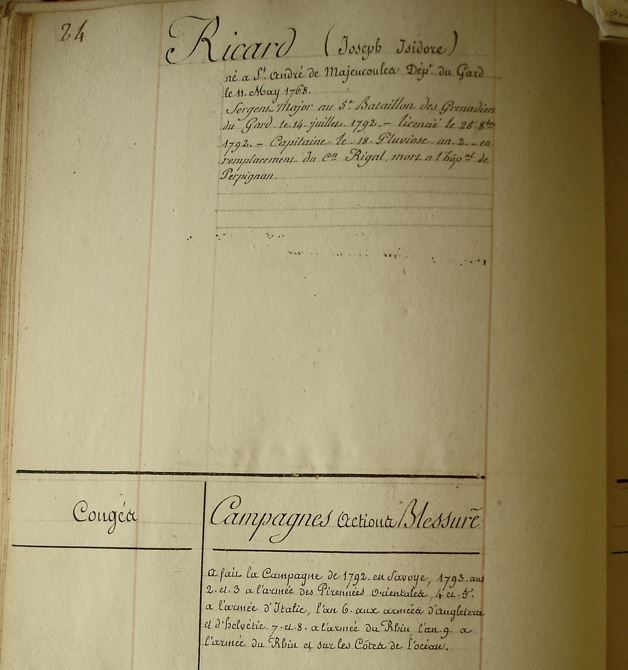 24
Ricard (Joseph Isidore)
né a St. André de Majencoules Dépt. du Gard
le 11. May 1768.
Sergent-Major au 5e Bataillon des Grenadiers
du Gard le 14. juillet 1792. - licencié le 26 8bre
1792. - Capitaine le 18 Pluviose an 2. - en
remplacement du Cen Rigal, mort a l'hôpal de
Perpignan.
Congés
Campagnes actions Blessures
a fait la Campagne de 1792. en Savoye, 1793. ans
2. et. 3 a l'armée des Pirennées Orientales, 4 et. 5.
a l'armée d'Italie, l'an 6. aux armées d'angleterre
et d'helvétie. 7. et 8. a l'armée du Rhin, l'an 9. a
l'armée du Rhin et sur les Côtes de l'océan.